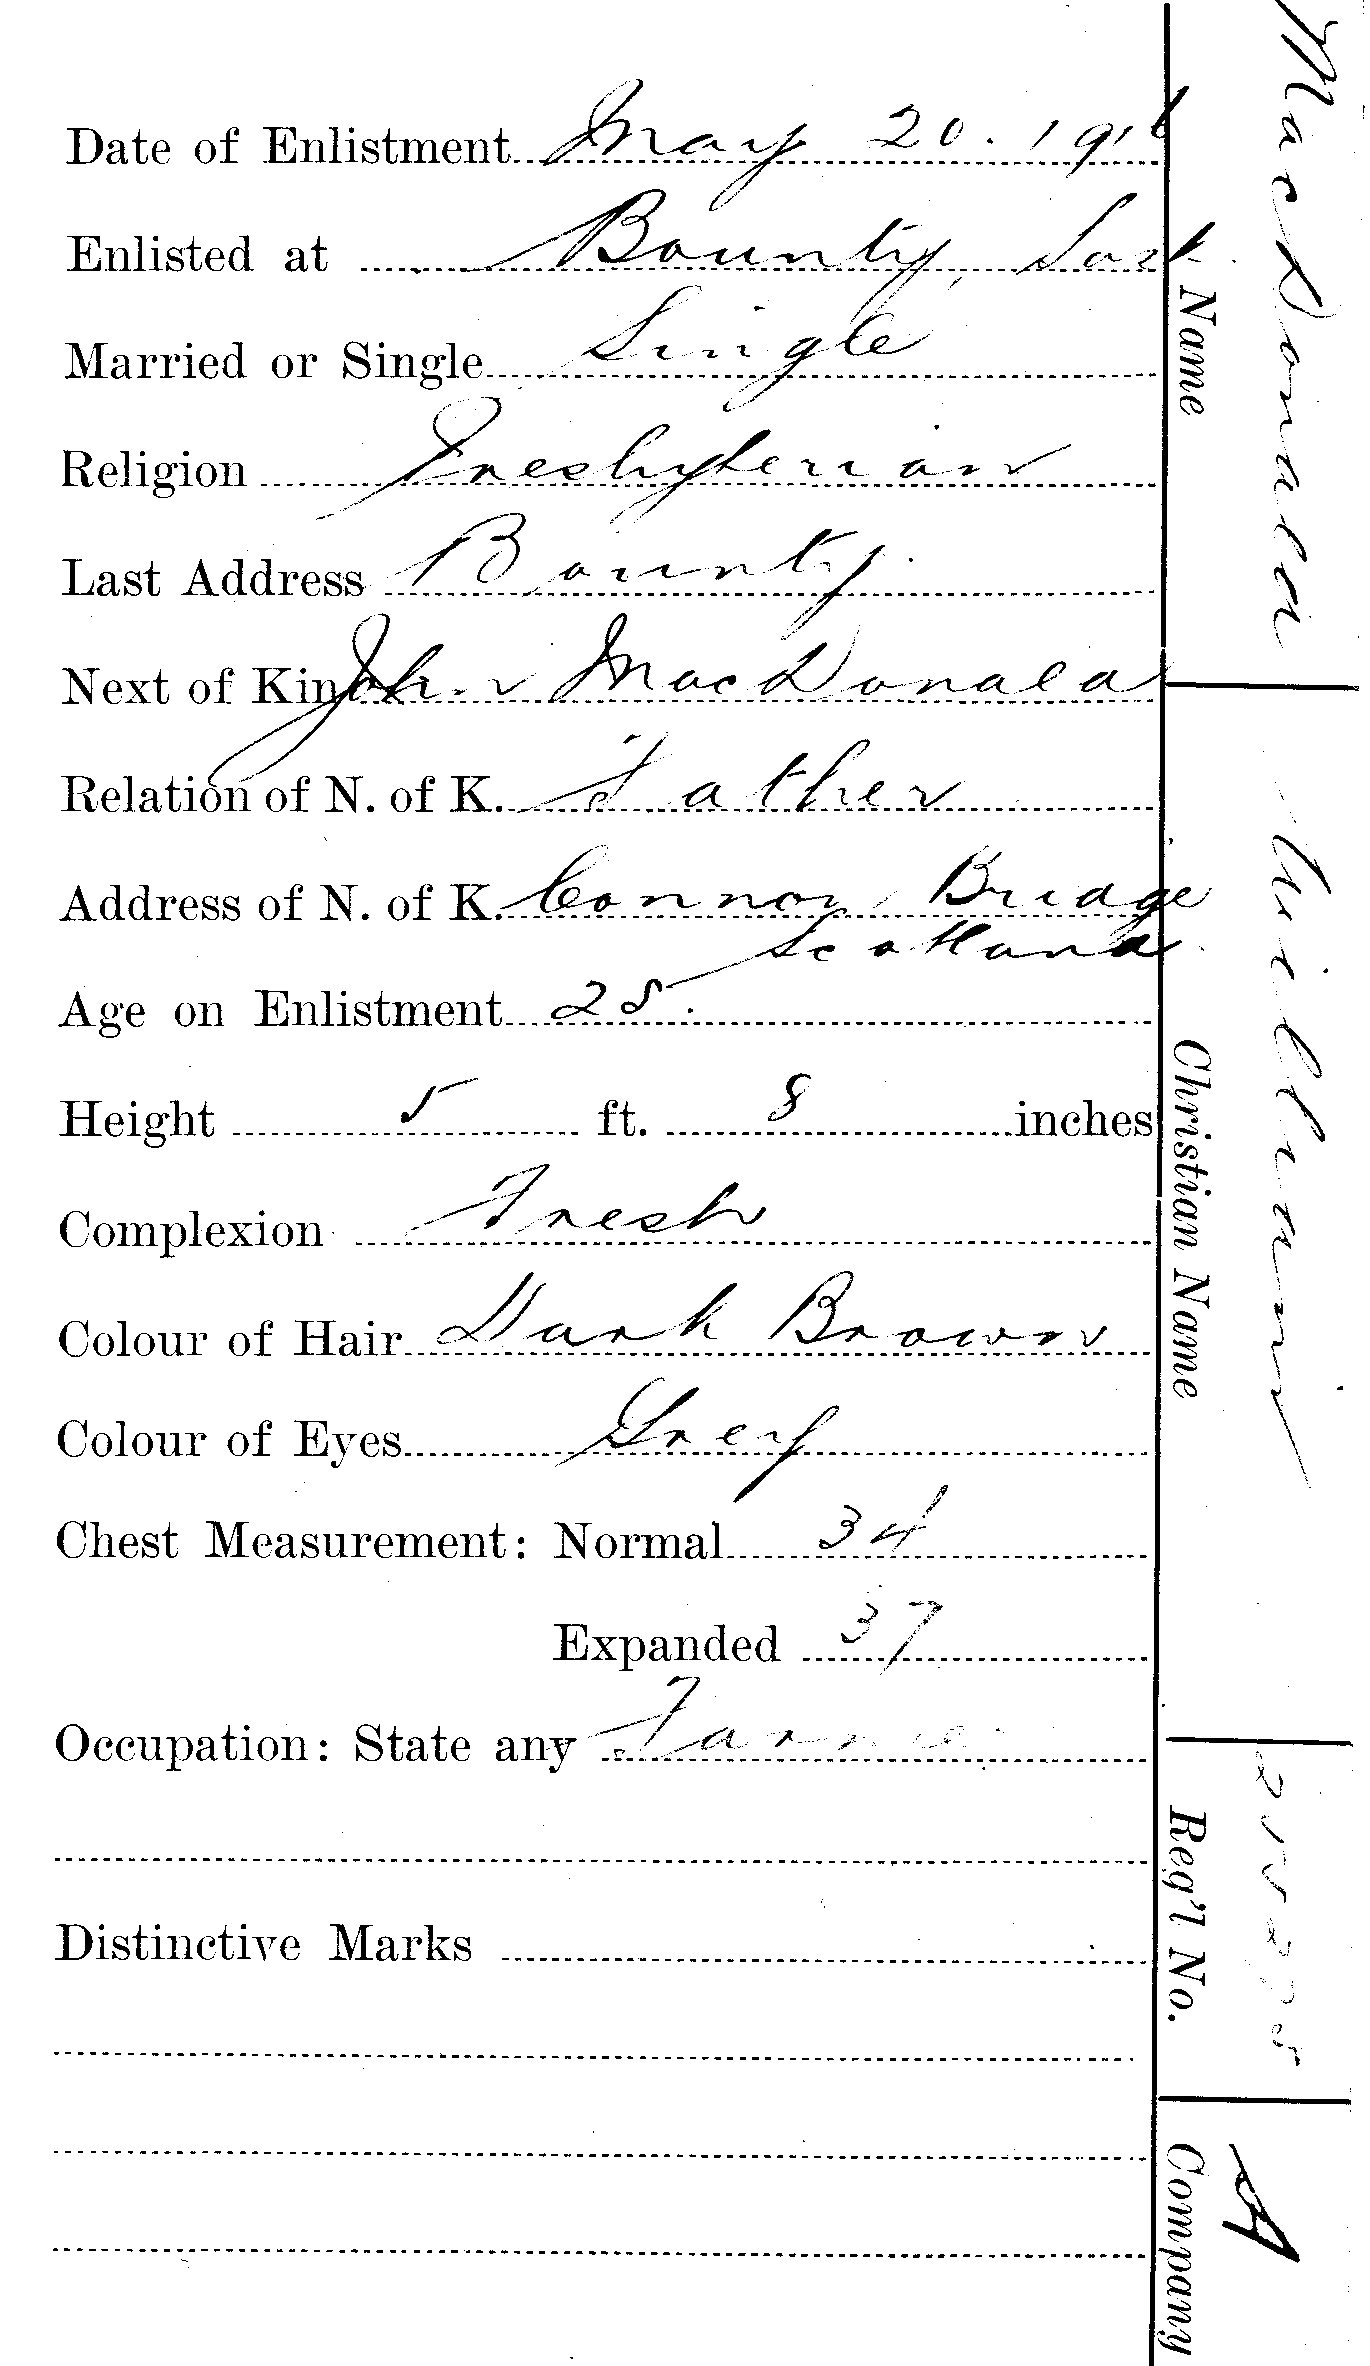 Date of Enlistment May 20. 1916
Enlisted at Bounty, Sask
Married or Single Single
Religion Presbyterian
Last Address Bounty.
Next of Kin John MacDonald
Relation of N. of K. Father
Address of N. of K. Connon Bridge
Scotland
Age on Enlistment 25.
Height 5 ft. 8 inches
Complexion Fresh
Colour of Hair Dark Brown
Colour of Eyes Grey
Chest Measurement: Normal 34
Expanded 37
Occupation: State any Farmer
Distinctive Marks
Name MacDonald
Christian Name William
Reg'l No.
Company A